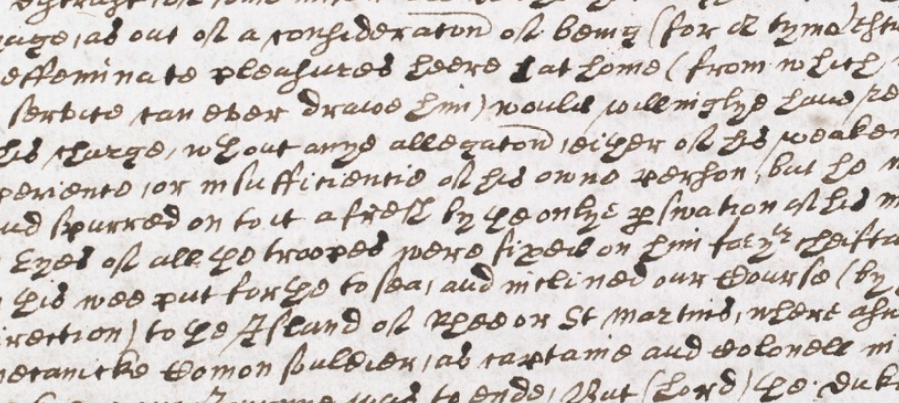 uage, as out of a consideraton of being (for a tyme)
effeminate pleasures heere at home (from which
service can ever drawe him) would willinglye have
his charge, wthout anye allegaton, either of his weaken
perience, or insufficientie of his owne person, but he
and spurred on to it afresh by the onlye pswation of his
Eyes of all the troopes were fixed on him for yr cheifta
this wee put forthe to sea, and inclined our Course (by
irection) to the Island of Rhee or St Martins, where
mecanicke Comon souldier, as captaine and Colonell in
was to ende, But (Lord) the Duke